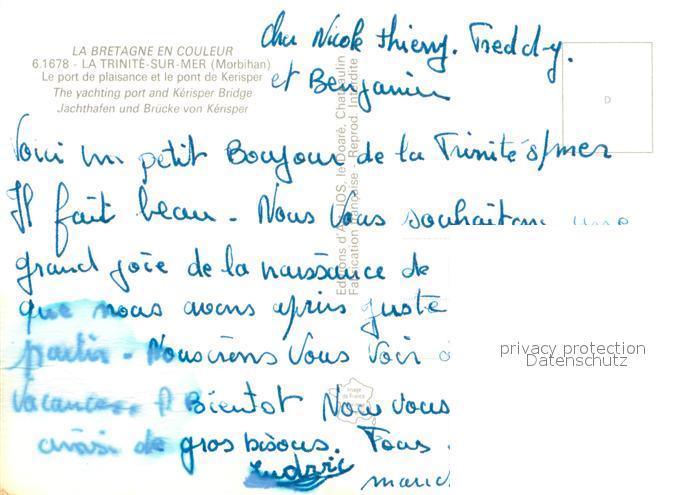 cher Nicole thierry. Freddy.
et Benjamin
LA BRETAGNE EN COULEUR
6.1678 - LA TRINITÉ-SUR-MER (Morbihan)
Le port de plaisance et le pont de Kerisper
The yachting port and Kérisper Bridge
Jachthafen und Brücke von Kérisper
Editions d'Art JOS, le Doaré, Chateaulin
Fabrication Française - Reprod. Interdite
D
Voici un petit Bonjour de la Trinité s/mer
Il fait beau. Nous Vous souhaitons une
grand joie de la naissance de
que nous avons apris juste
partir. Nous irons Vous Voir
vacances A Bientot Nous vous
de gros bisous. Tous
Ludovic
privacy protection
Datenschutz
Image de France